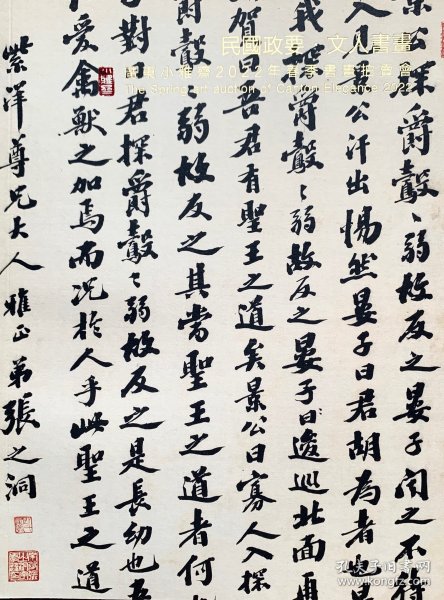 民國政要 文人書畫
廣東小雅齋2022年春季書畫拍賣會
The Spring art auction of Canton Elegance 2022
景公探爵鷇鷇弱故反之晏子聞之不待
入見公汗出惕然晏子曰君胡為者也景
我探爵鷇鷇弱故反之晏子曰逡巡北面再
賀曰吾君有聖王之道矣景公曰寡人入探
爵鷇弱故反之其當聖王之道者何
子對君探爵鷇鷇弱故反之是長幼也吾
愛禽獸之加焉而況於人乎此聖王之道
紫洋尊兄大人雅正弟張之洞
孔夫子旧书网